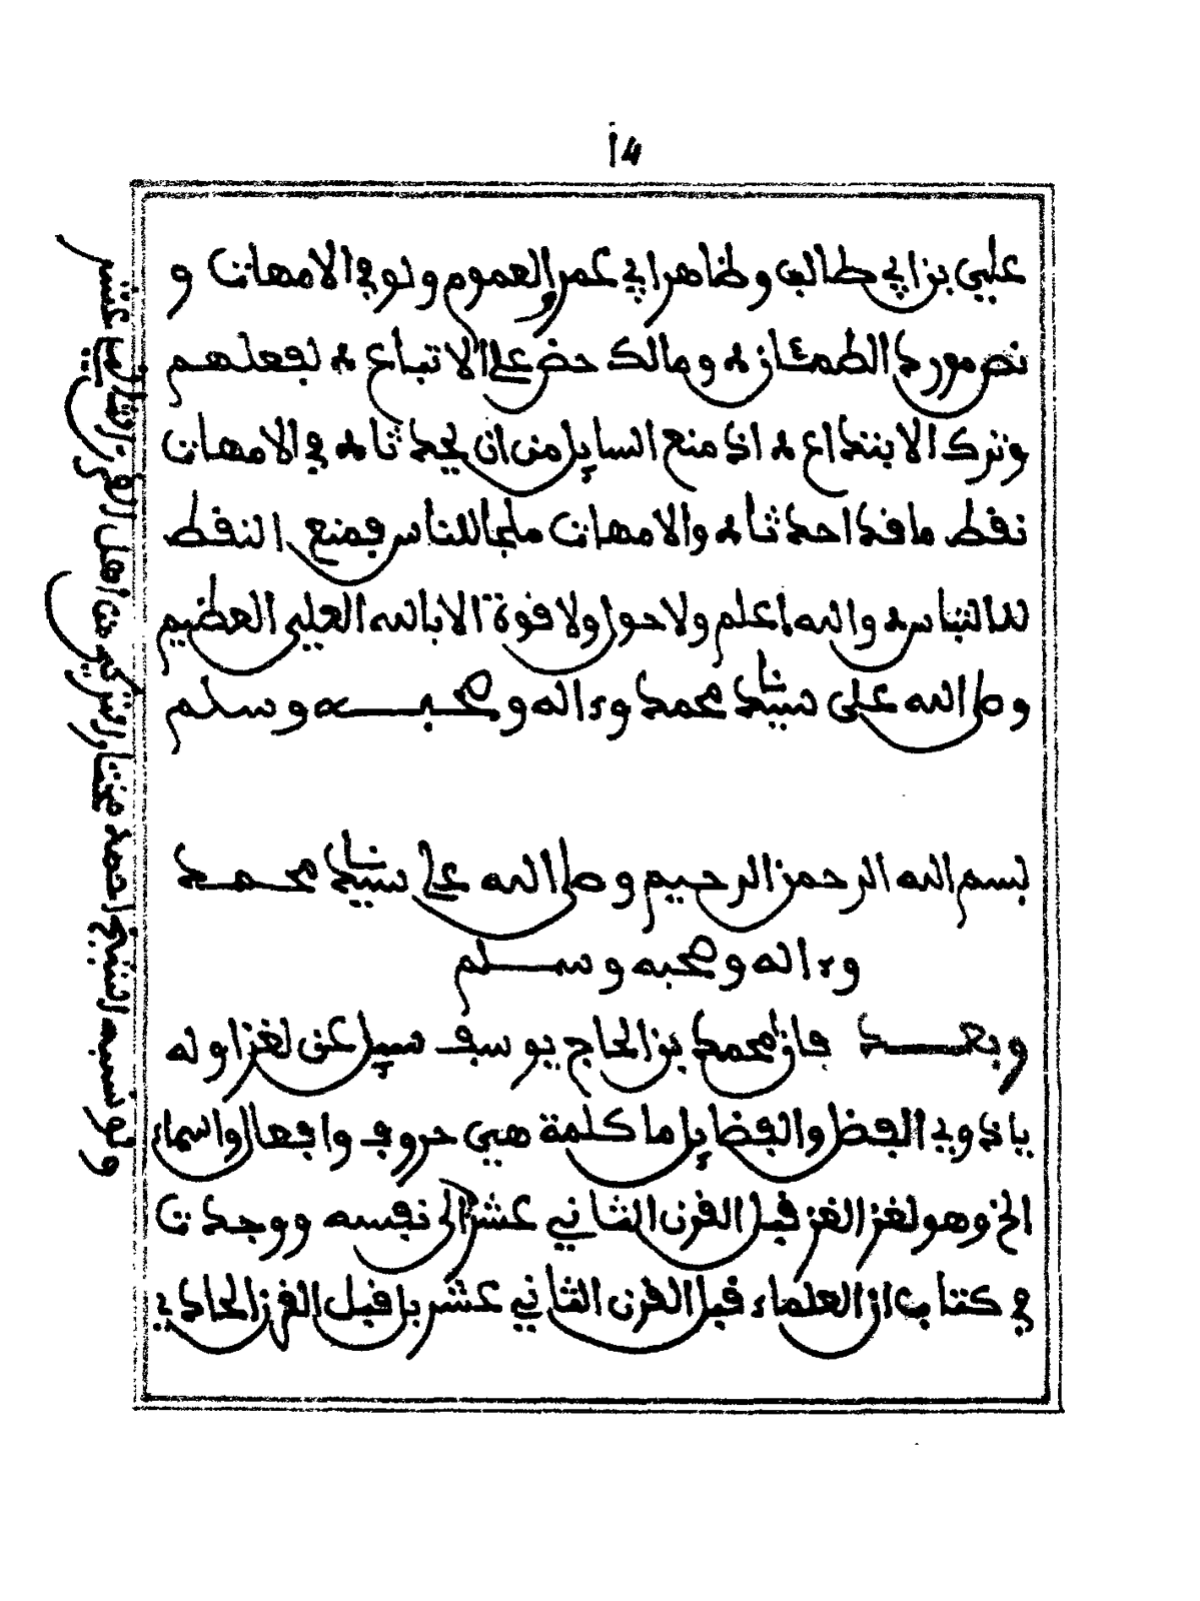 ١٤
علي بن ابي طالب وظاهر ابي عمر والعموم ولو في الامهات و
نص مورد الظمئان ه ومالك حض على الاتباع ه لفعلهم
وترك الابتداع ه اذ منع السايل من ان يحدثا ه في الامهات
نقط ما قد احدثا ه والامهات ملجا للناس فمنع النقط
للالتباس ه والله اعلم ولا حول ولا قوة الا بالله العلي العظيم
وصلى الله على سيدنا محمد وءاله وصحبه وسلم
بسم الله الرحمن الرحيم وصلى الله على سيدنا محمد
وءاله وصحبه وسلم
وبعد فان محمد بن الحاج يوسف سيل عن لغز اوله
يا ذوي الفظ والفضايل ما كلمة هي حروف وافعال واسماء
الخ وهو لغز الغز قبل القرن الثاني عشر الى نفسه ووجدت
في كتاب ان العلماء قبل القرن الثاني عشر بل قبل القرن الحادي
وقد نسبه التنبكي احمد من اهل القرن الثاني عشر